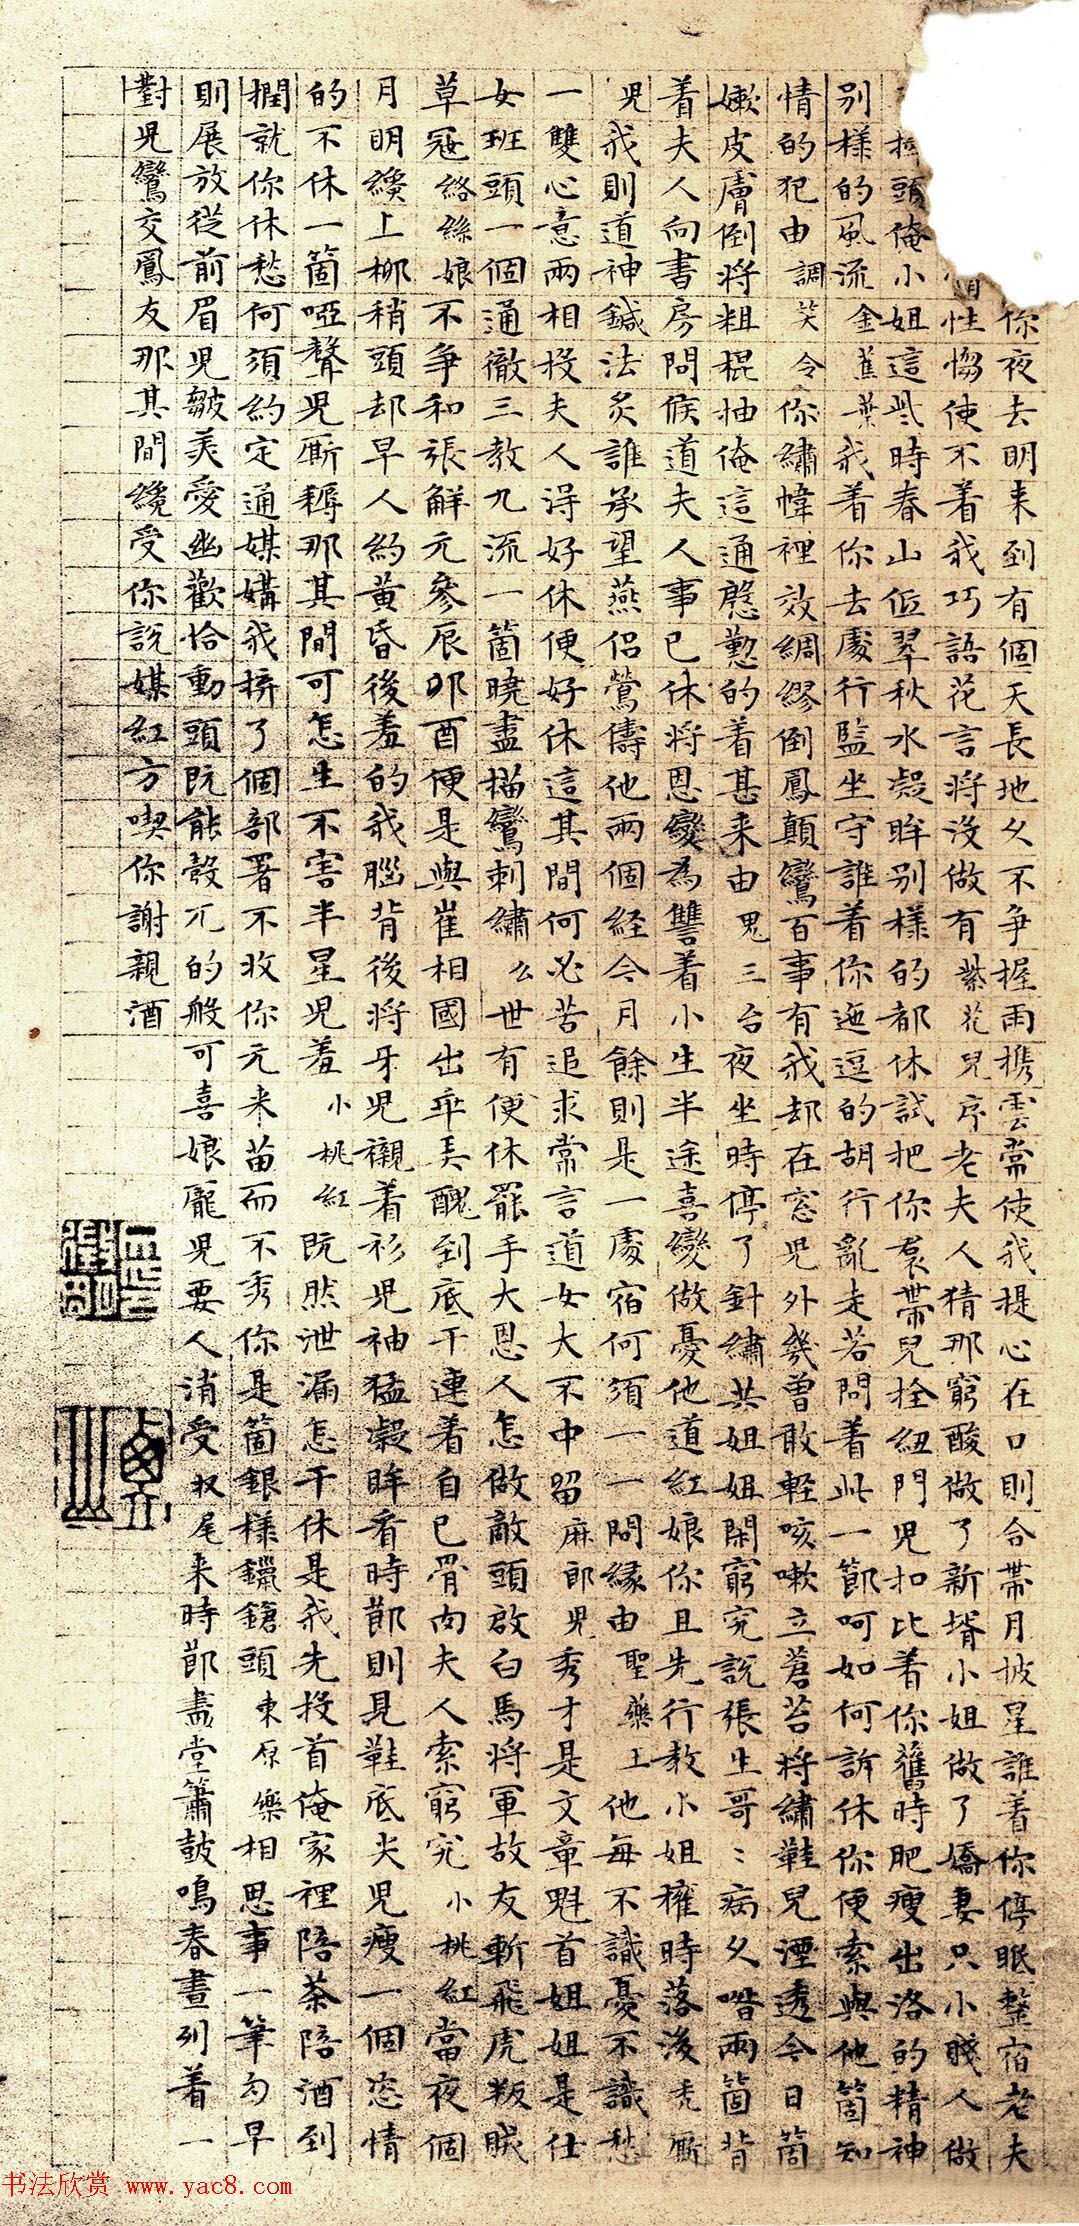 你夜去明来到有個天長地久不争握雨携雲常使我提心在口則合帶月披星誰着你停眠整宿老夫
性㑳使不着我巧語花言將没做有紫花兒序老夫人猜那窮酸做了新壻小姐做了嬌妻只小賤人做
頭俺小姐這些時春山低翠秋水凝眸別樣的都休試把你裙帶兒拴紐門児扣比着你舊時肥瘦出洛的精神
別樣的風流金蕉葉我着你去處行監坐守誰着你迤逗的胡行亂走若問着此一節呵如何訴休你便索與他箇知
情的犯由調笑令你繡幃裡效綢繆倒鳳顛鸞百事有我却在窓児外幾曽敢軽咳嗽立蒼苔將繡鞋兒湮透今日箇
嫩皮膚倒將粗棍抽俺這通慇懃的着甚来由鬼三台夜坐時停了針繡共姐姐閑窮究說張生哥〻病久喒兩箇背
着夫人向書房問候道夫人事已休將恩變為讐着小生半途喜變做憂他道紅娘你且先行教小姐權時落後秃厮
児我則道神鍼法炙誰承望燕侣鶯儔他兩個経今月餘則是一處宿何須一一問縁由聖藥王他每不識憂不識愁
一雙心意兩相投夫人淂好休便好休這其間何必苦追求常言道女大不中留麻郎児秀才是文章魁首姐姐是仕
女班頭一個通徹三教九流一箇曉盡描鸞刺繡么世有便休罷手大恩人怎做敵頭啟白馬將軍故友斬飛虎叛賊
草冦絡絲娘不争和張觧元參辰卯酉便是與崔相國出乖弄醜到底干連着自己骨肉夫人索窮究小桃紅當夜個
月明纔上栁稍頭却早人約黄昏後羞的我腦背後將牙児襯着衫児袖猛凝眸看時節則見鞋底尖児瘦一個恣情
的不休一箇啞聲児厮耨那其間可怎生不害半星児羞小桃紅既然泄漏怎干休是我先投首俺家裡陪茶陪酒到
撋就你休愁何須約定通媒媾我擔了個部署不收你元来苗而不秀你是箇銀樣鑞鎗頭東原樂相思事一筆勾早
則展放從前眉児皺美愛幽歡恰動頭既能彀兀的般可喜娘龎児要人消受収尾来時節畫堂簫鼓鳴春晝列着一
對児鸞交鳳友那其間纔受你說媒紅方喫你謝親酒
书法欣赏 www.yac8.com